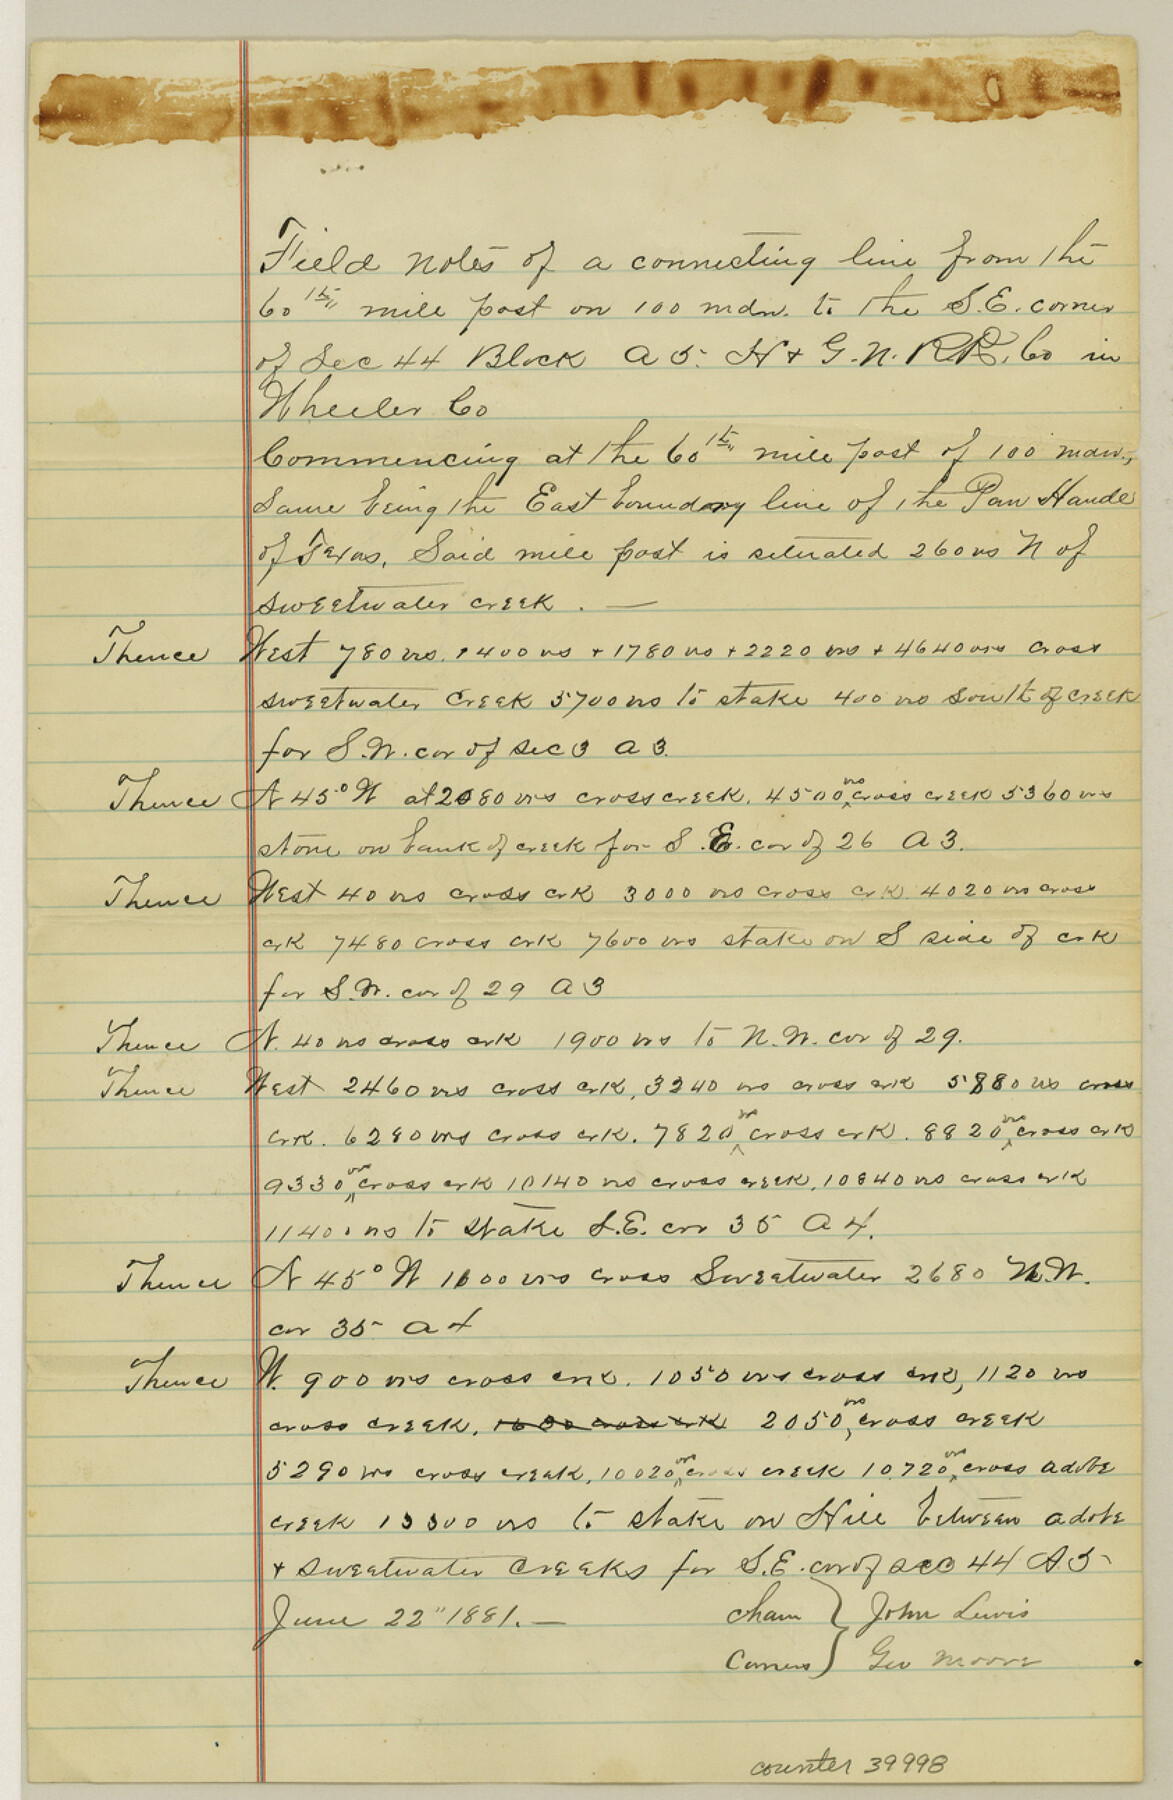 Field notes of a connecting line from the
60th mile post on 100 mdn. to the S.E. corner
of Sec 44 Block A 5. H + G. N. RR. Co in
Wheeler Co
Commencing at the 60th mile post of 100 mdn.,
Same being the East boundary line of the Pan Handle
of Texas, Said mile post is situated 260 vs N of
sweetwater creek. —
Thence West 780 vrs. + 1400 vs + 1780 vs + 2220 vrs + 4640 vrs cross
sweetwater creek 5700 vs to stake 400 vs south of creek
for S.W. cor of sec 3 A 3.
Thence N 45° W at 2080 vrs cross creek. 4500 vrs cross creek 5360 vrs
stone on bank of creek for S.E. cor of 26 A 3.
Thence West 40 vrs cross crk 3000 vrs cross crk 4020 vrs cross
crk 7480 cross crk 7600 vrs stake on S side of crk
for S.W. cor of 29 A 3
Thence N. 40 vs cross crk 1900 vrs to N.W. cor of 29.
Thence West 2460 vrs cross crk, 3240 vrs cross crk 5880 vs cross
crk. 6280 vrs cross crk. 7820 vr cross crk. 8820 vrs cross crk
9330 vrs cross crk 10140 vrs cross creek, 10840 vs cross crk
11400 vs to stake S.E. cor 35 A 4.
Thence N 45° W 1600 vrs cross Sweetwater 2680 N.W.
cor 35 A 4
Thence W. 900 vrs cross crk. 1050 vrs cross crk, 1120 vrs
cross creek, 1600 cross crk 2050 vrs cross creek
5290 vrs cross creek, 10020 vrs cross creek 10720 vrs cross adobe
creek 13300 vrs to stake on Hill between adobe
+ sweetwater creeks for S.E. cor of sec 44 A 5
June 22" 1881. — Chain } John Lewis
Carriers } Geo Moore
counter 39998